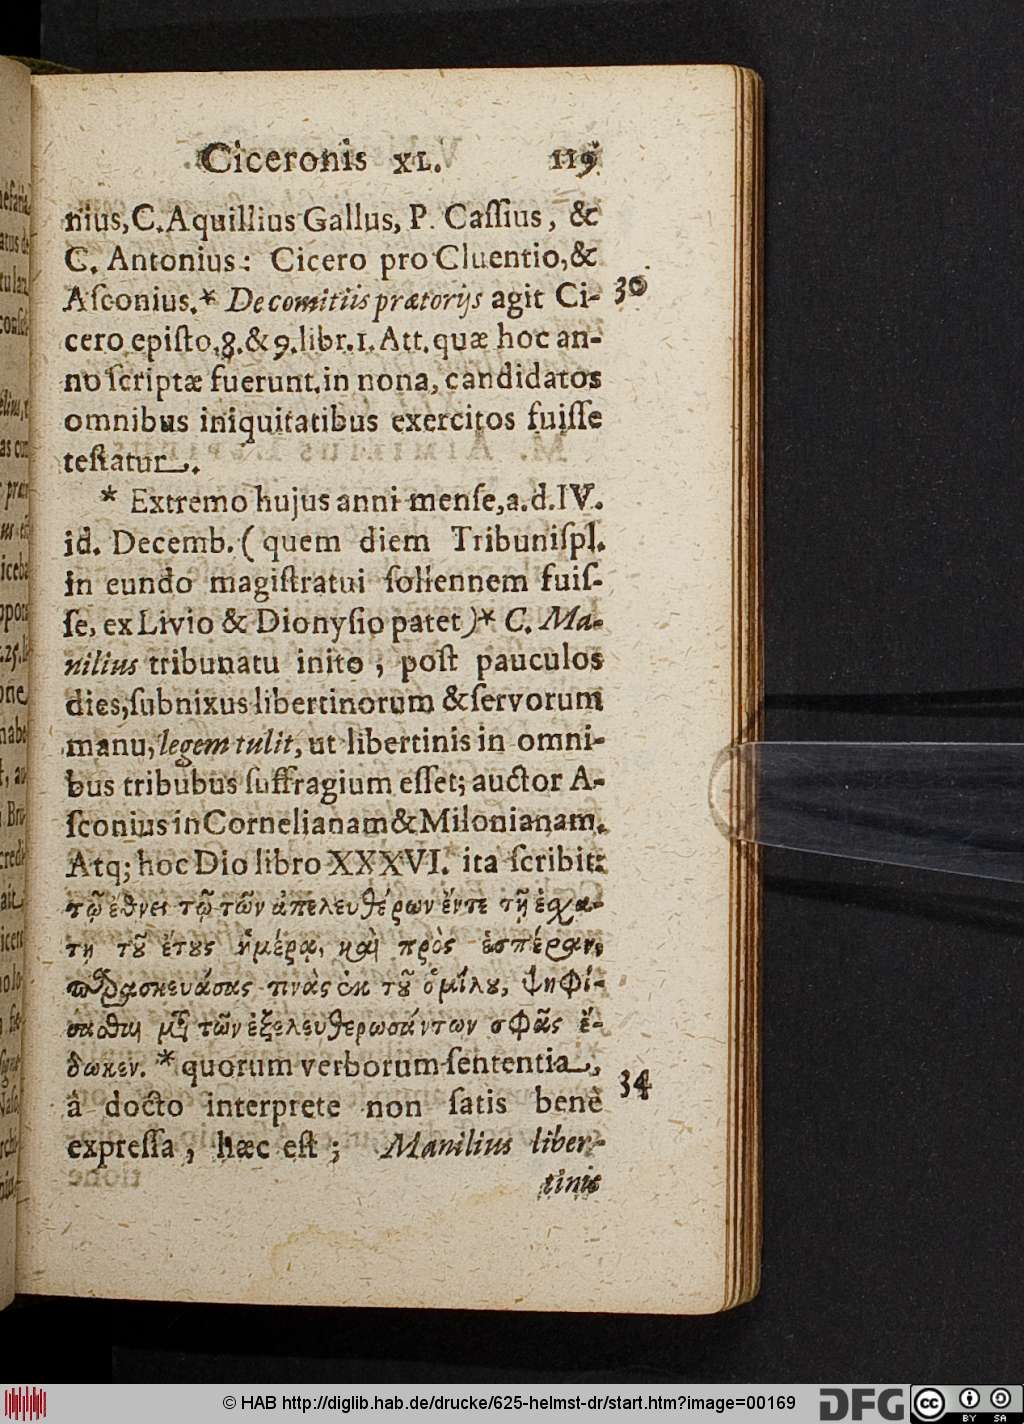 Ciceronis XL. 119
nius, C. Aquillius Gallus, P. Caſſius, &
C. Antonius: Cicero pro Cluentio, &
Aſconius.* De comitiis prætorijs agit Ci- 30
cero epiſto. 8. & 9. libr. 1. Att. quæ hoc an-
no ſcriptæ fuerunt. in nona, candidatos
omnibus iniquitatibus exercitos fuiſſe
teſtatur.
* Extremo hujus anni menſe, a. d. IV.
id. Decemb. ( quem diem Tribuniſpl.
in eundo magiſtratui ſollennem fuiſ-
ſe, ex Livio & Dionyſio patet )* C. Ma-
nilius tribunatu inito, poſt pauculos
dies, ſubnixus libertinorum & ſervorum
manu, legem tulit, ut libertinis in omni-
bus tribubus ſuffragium eſſet; auctor A-
ſconius in Cornelianam & Milonianam.
Atq; hoc Dio libro XXXVI. ita ſcribit:
τῷ ἔθνει τῷ τῶν ἀπελευθέρων ἔν τε τῇ ἐσχά-
τῃ τοῦ ἔτους ἡμέρᾳ, καὶ πρὸς ἑσπέραν,
παρασκευάσας τινὰς ἐκ τοῦ ὁμίλου, ψηφί-
σασθαι μετὰ τῶν ἐξελευθερωσάντων σφᾶς ἔ-
δωκεν. * quorum verborum ſententia,
â docto interprete non ſatis benè 34
expreſſa, hæc eſt; Manilius liber-
tinis
© HAB http://diglib.hab.de/drucke/625-helmst-dr/start.htm?image=00169
DFG
cc
BY SA